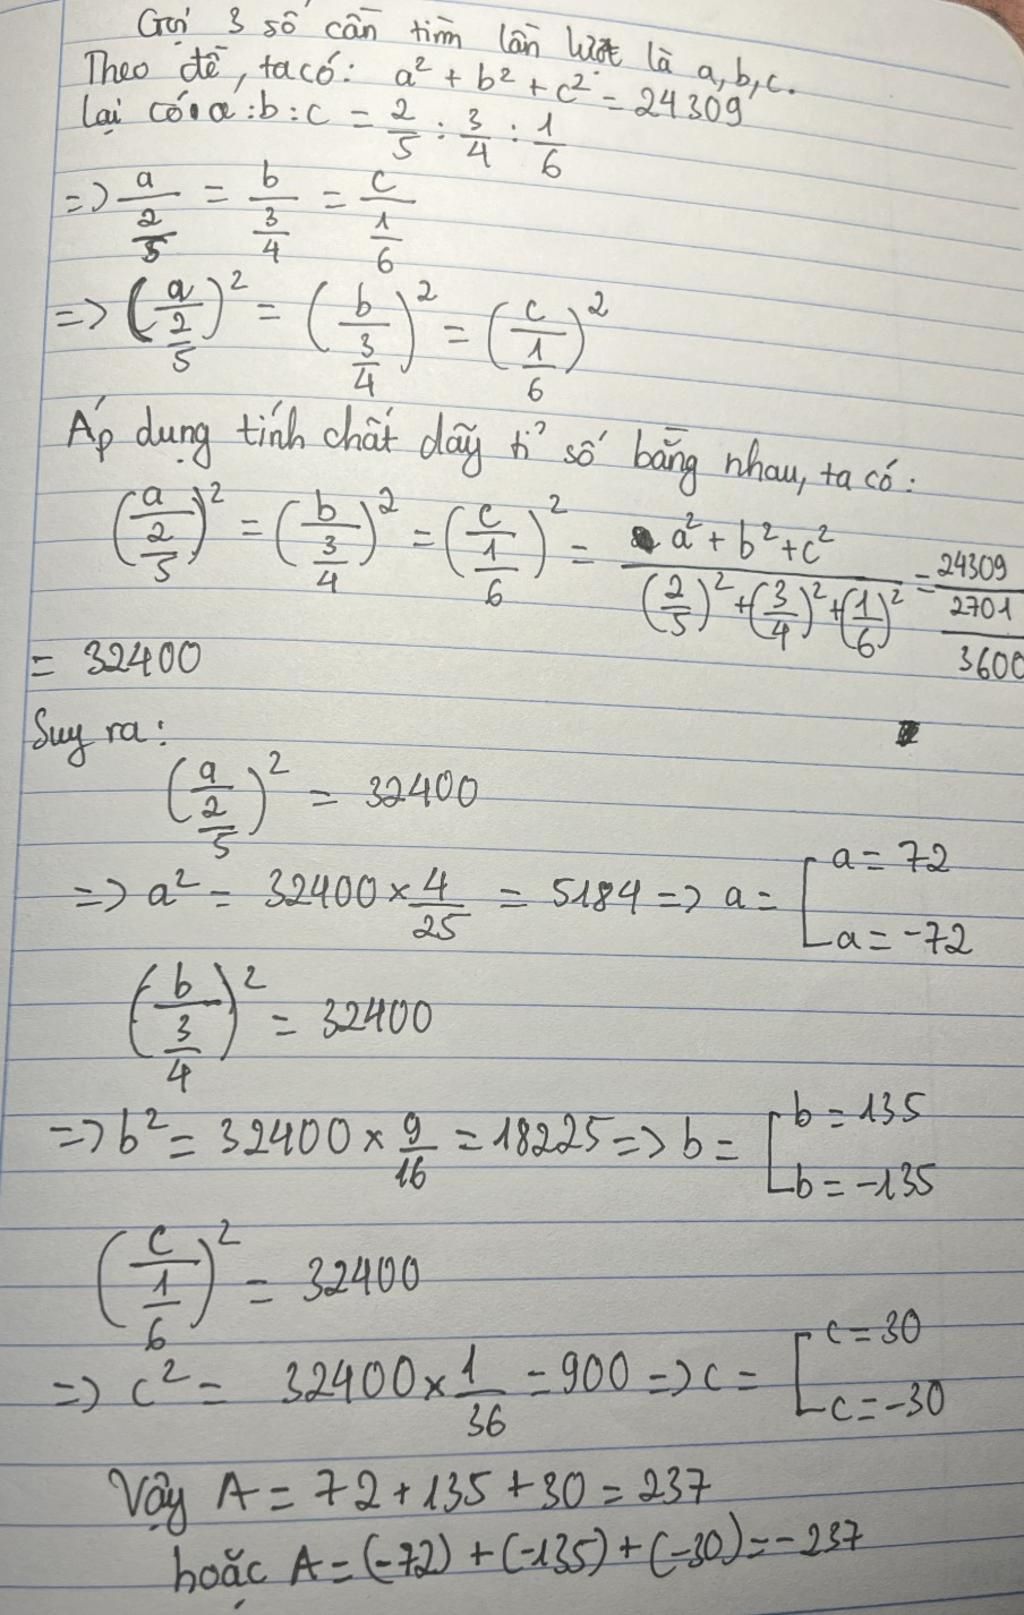 Gọi 3 số cần tìm lần lượt là a, b, c.
Theo đề, ta có: a² + b² + c² = 24309
Lại có: a : b : c = 2/5 : 3/4 : 1/6
=> a/(2/5) = b/(3/4) = c/(1/6)
=> (a/(2/5))² = (b/(3/4))² = (c/(1/6))²
Áp dụng tính chất dãy tỉ số bằng nhau, ta có:
(a/(2/5))² = (b/(3/4))² = (c/(1/6))² = (a² + b² + c²)/((2/5)² + (3/4)² + (1/6)²) = 24309/(2701/3600)
= 32400
Suy ra:
(a/(2/5))² = 32400
=> a² = 32400 × 4/25 = 5184 => a = [ a = 72
a = -72
(b/(3/4))² = 32400
=> b² = 32400 × 9/16 = 18225 => b = [ b = 135
b = -135
(c/(1/6))² = 32400
=> c² = 32400 × 1/36 = 900 => c = [ c = 30
c = -30
Vậy A = 72 + 135 + 30 = 237
hoặc A = (-72) + (-135) + (-30) = -237